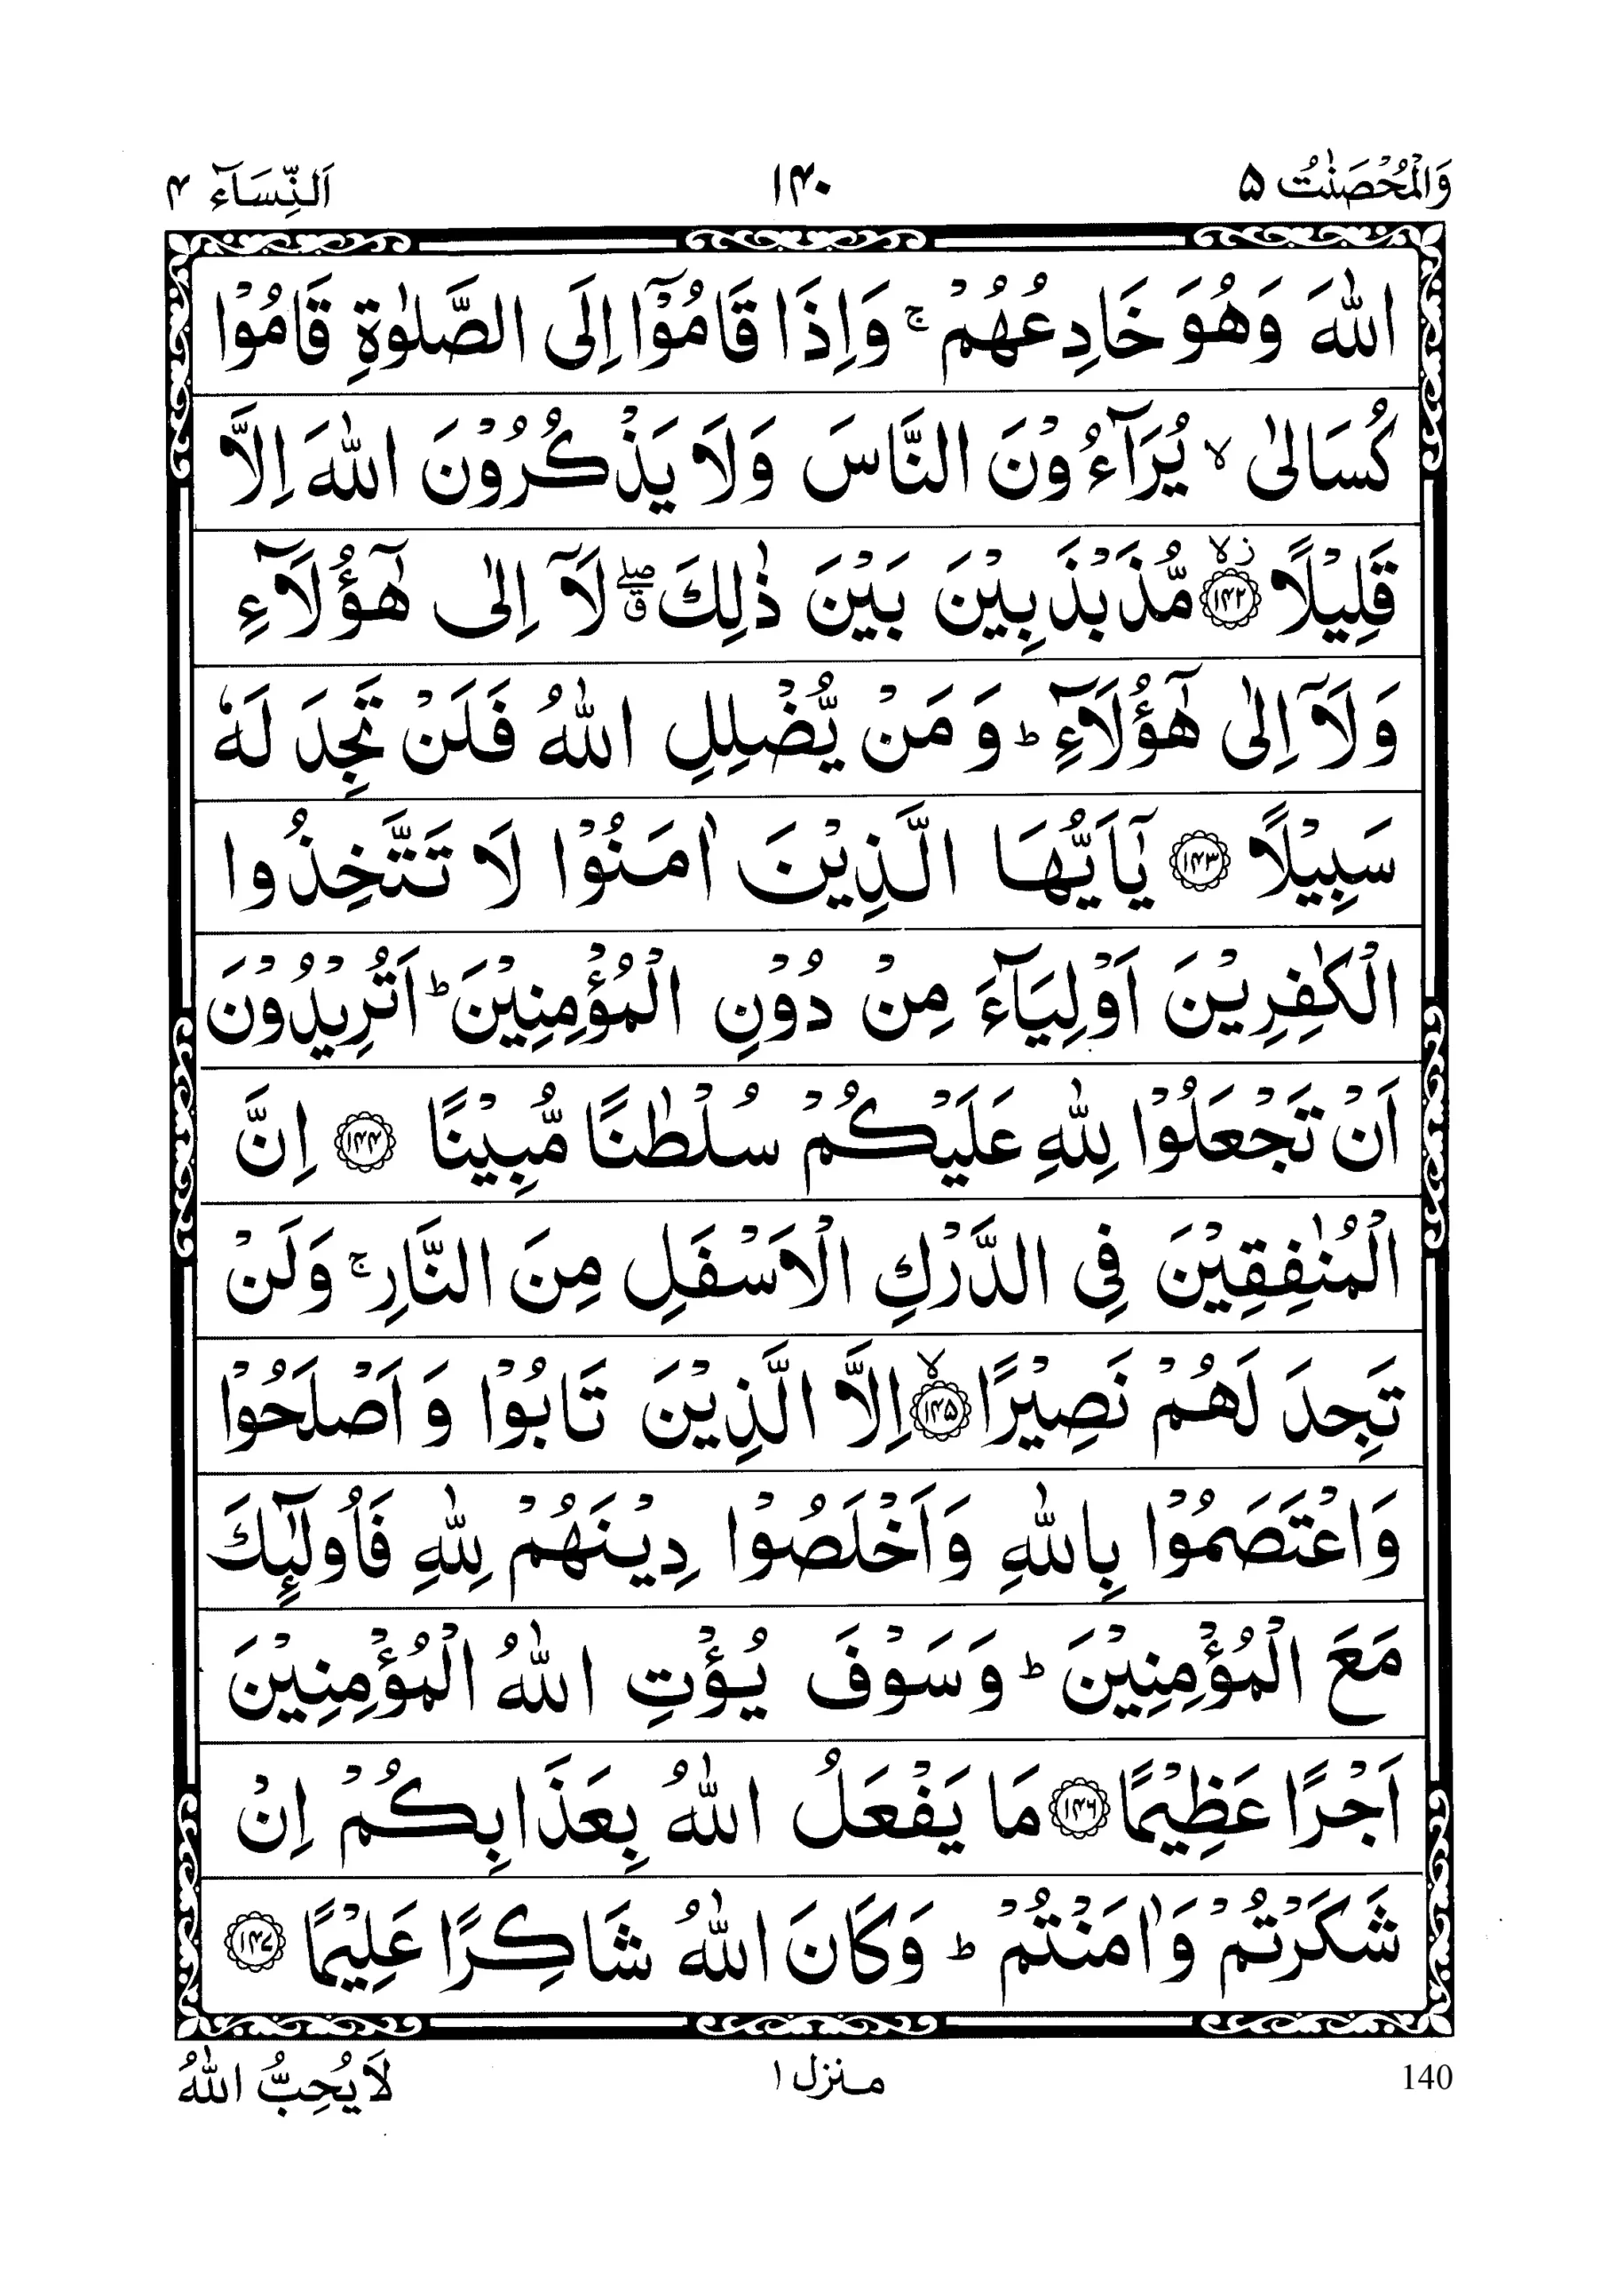 وَالْمُحْصَنٰتُ ۵ ۱۴۰ اَلنِّسَآء ۴
اللّٰهَ وَهُوَ خَادِعُهُمْ ۚ وَاِذَا قَامُوْۤا اِلَى الصَّلٰوةِ قَامُوْا
كُسَالٰى ۙ يُرَآءُوْنَ النَّاسَ وَلَا يَذْكُرُوْنَ اللّٰهَ اِلَّا
قَلِيْلًا ﴿۱۴۲﴾ مُّذَبْذَبِيْنَ بَيْنَ ذٰلِكَ ۖ لَاۤ اِلٰى هٰۤؤُلَآءِ
وَلَاۤ اِلٰى هٰۤؤُلَآءِ ؕ وَمَنْ يُّضْلِلِ اللّٰهُ فَلَنْ تَجِدَ لَهٗ
سَبِيْلًا ﴿۱۴۳﴾ يٰۤاَيُّهَا الَّذِيْنَ اٰمَنُوْا لَا تَتَّخِذُوا
الْكٰفِرِيْنَ اَوْلِيَآءَ مِنْ دُوْنِ الْمُؤْمِنِيْنَ ؕ اَتُرِيْدُوْنَ
اَنْ تَجْعَلُوْا لِلّٰهِ عَلَيْكُمْ سُلْطٰنًا مُّبِيْنًا ﴿۱۴۴﴾ اِنَّ
الْمُنٰفِقِيْنَ فِى الدَّرْكِ الْاَسْفَلِ مِنَ النَّارِ ۚ وَلَنْ
تَجِدَ لَهُمْ نَصِيْرًا ﴿۱۴۵﴾ ۙ اِلَّا الَّذِيْنَ تَابُوْا وَاَصْلَحُوْا
وَاعْتَصَمُوْا بِاللّٰهِ وَاَخْلَصُوْا دِيْنَهُمْ لِلّٰهِ فَاُولٰٓئِكَ
مَعَ الْمُؤْمِنِيْنَ ؕ وَسَوْفَ يُؤْتِ اللّٰهُ الْمُؤْمِنِيْنَ
اَجْرًا عَظِيْمًا ﴿۱۴۶﴾ مَا يَفْعَلُ اللّٰهُ بِعَذَابِكُمْ اِنْ
شَكَرْتُمْ وَاٰمَنْتُمْ ؕ وَكَانَ اللّٰهُ شَاكِرًا عَلِيْمًا ﴿۱۴۷﴾
140 منزل ۱ لَا يُحِبُّ اللّٰهُ